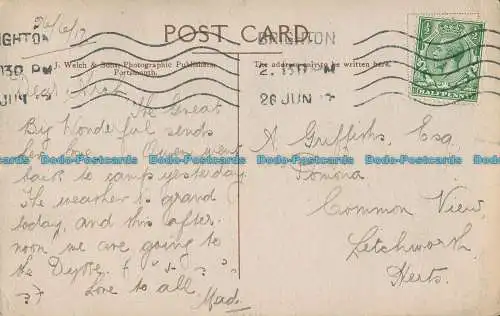 26/6/17
POST CARD.
BRIGHTON
BRIGHTON
J. Welch & Sons, Photographic Publishers,
Portsmouth.
The address only to be written here.
2.15 PM
26 JUN 17
HALFPENNY
Dear
The Great
By Wonderful sends
her love. Owen went
back to camp yesterday
The weather is grand
today, and this after-
noon we are going to
the Dyke.
?)
Love to all.
Mad.
A Griffiths, Esq
Pomona
Common View,
Letchworth,
Herts.
Dodo-Postcards Dodo-Postcards Dodo-Postcards Dodo-Postcards Dodo-Postcards